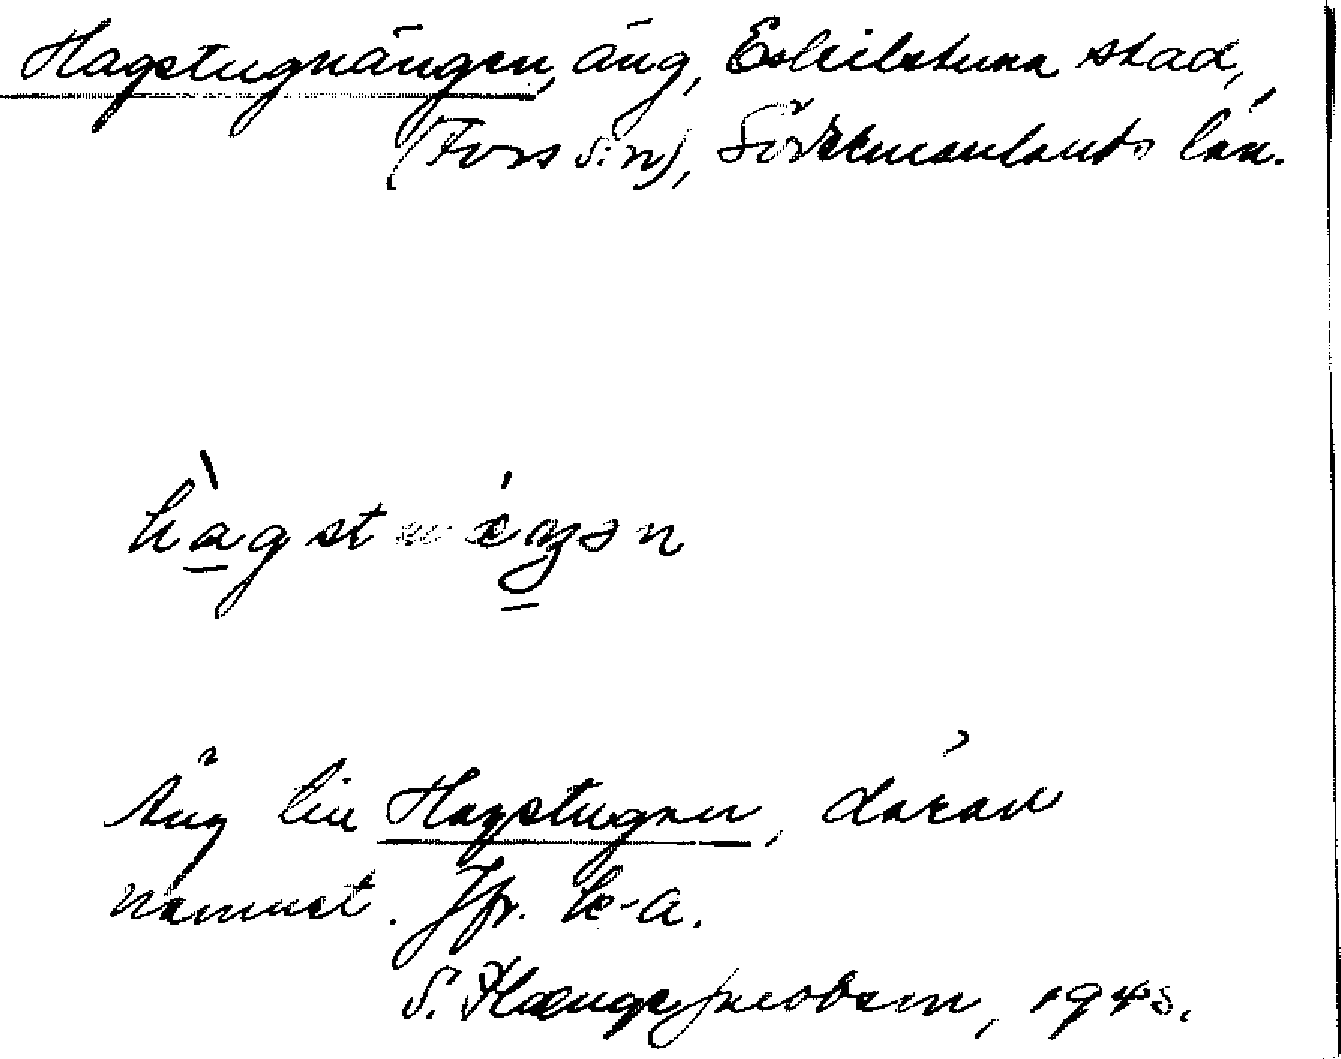 Hagstugnängen, äng, Eskilstuna stad,
(Fors s:n), Södermanlands län.
Äng lin Hagstugnen, därav
namnet. Jfr. k-a.
S. Hænge Jacobsen, 194